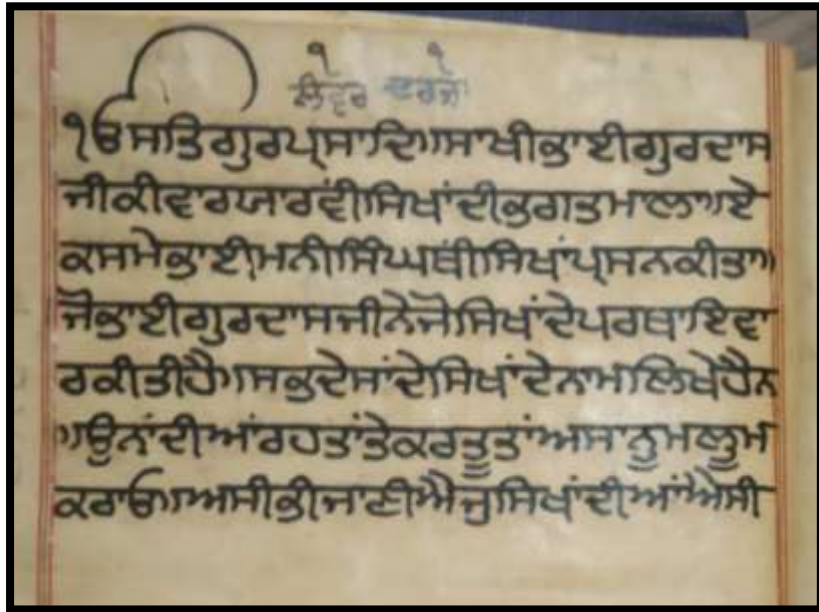 ੧ ੧
ਨੰਬਰ ਵਰਕਾ
ੴਸਤਿਗੁਰਪ੍ਰਸਾਦਿ॥ਸਾਖੀਭਾਈਗੁਰਦਾਸ
ਜੀਕੀਵਾਰਯਾਰਵੀਂਸਿਖਾਂਦੀਭਗਤਮਾਲਾ॥ਏ
ਕਸਮੇਭਾਈਮਨੀਸਿੰਘਥੀਂਸਿਖਾਂਪ੍ਰਸਨਕੀਤਾ॥
ਜੋਭਾਈਗੁਰਦਾਸਜੀਨੇਜੋਸਿਖਾਂਦੇਪਰਥਾਇਵਾ
ਰਕੀਤੀਹੈ॥ਸਭਦੇਸਾਂਦੇਸਿਖਾਂਦੇਨਾਮਲਿਖੇਹੈਨ
॥ਉਨਾਂਦੀਆਂਰਹਤਾਂਤੇਕਰਤੂਤਾਂਅਸਾਨੂਮਲੂਮ
ਕਰਾਓ॥ਅਸੀਭੀਜਾਣੀਐਜੁਸਿਖਾਂਦੀਆਂਐਸੀ